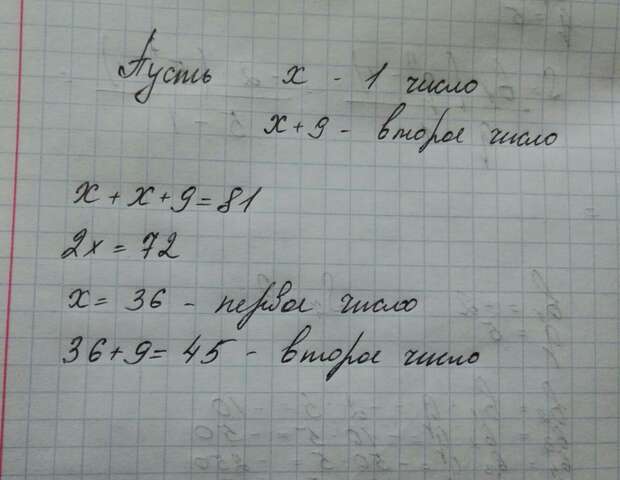 Пусть x - 1 число
x+9 - второе число
x + x + 9 = 81
2x = 72
x = 36 - первое число
36+9 = 45 - второе число